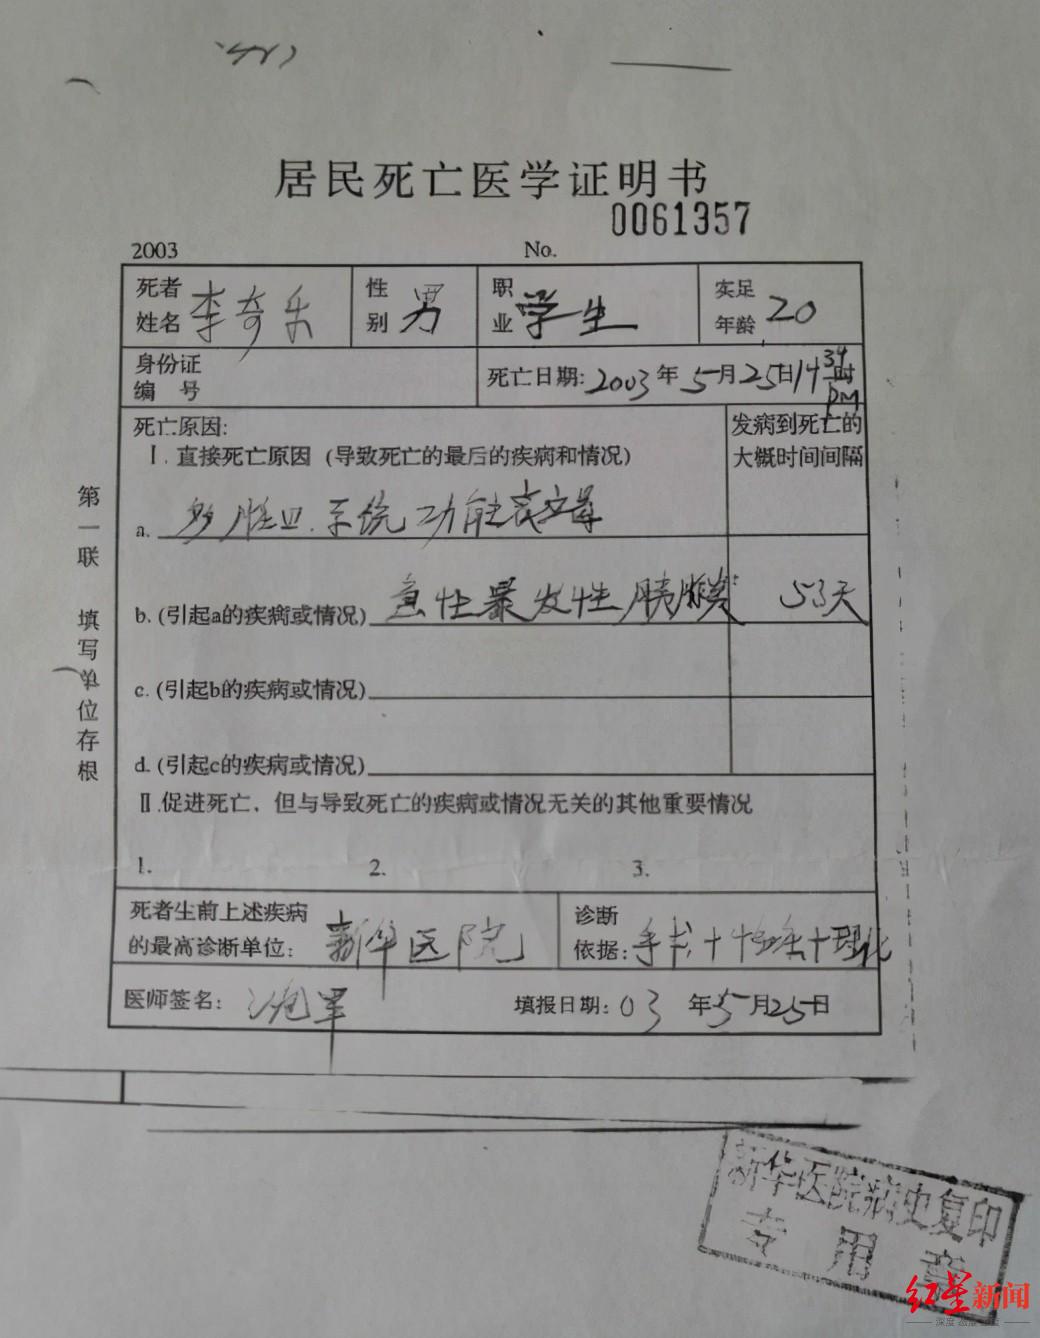 居民死亡医学证明书
0061357
2003 No.
死者姓名 李奇乐 性别 男 职业 学生 实足年龄 20
身份证编号 死亡日期: 2003年5月25日14 34时 PM
死亡原因: 发病到死亡的大概时间间隔
Ⅰ. 直接死亡原因 (导致死亡的最后的疾病和情况)
a. 多脏卫.系统功能衰竭
b. (引起a的疾病或情况) 急性暴发性胰腺炎 53天
c. (引起b的疾病或情况)
d. (引起c的疾病或情况)
Ⅱ.促进死亡、但与导致死亡的疾病或情况无关的其他重要情况
1. 2. 3.
死者生前上述疾病的最高诊断单位: 新华医院 诊断依据: 手术+ +理化
医师签名: 填报日期: 03年5月25日
第一联 填写单位存根
新华医院病史复印
专用章
红星新闻